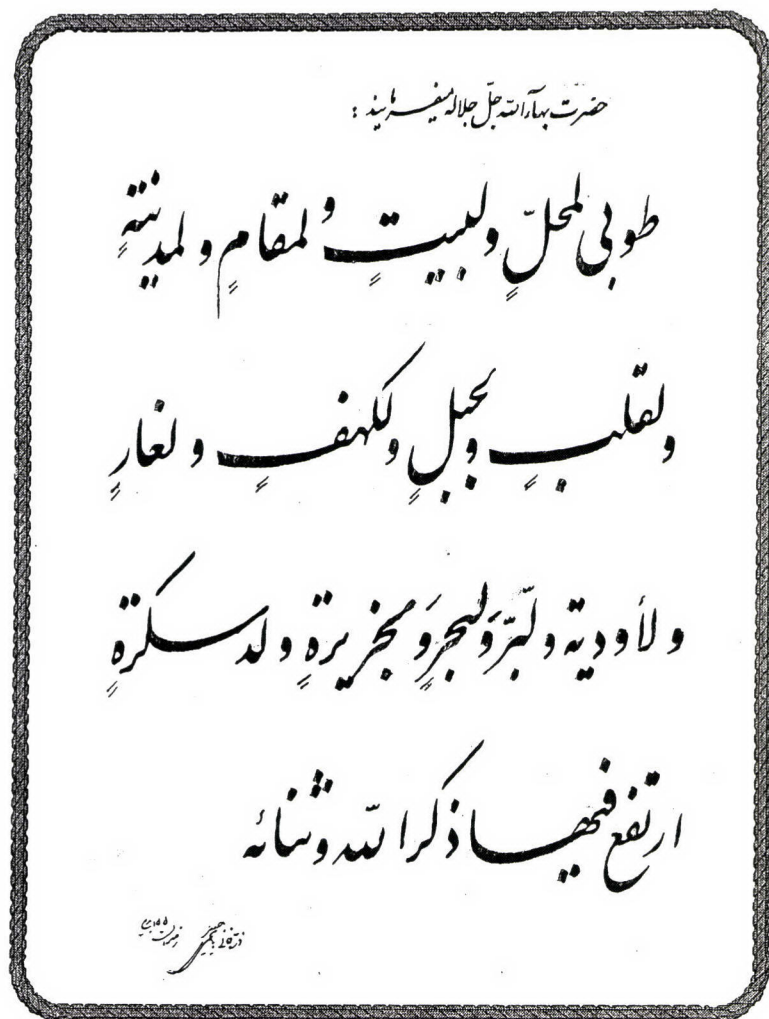 حضرت بهآءالله جلّ جلاله میفرمایند :
طوبی لمحلٍّ ولبیتٍ ولمقامٍ ولمدینةٍ
ولقلبٍ ولجبلٍ ولکهفٍ ولغارٍ
ولأودیة ولبرٍّ ولبحرٍ ولجزیرةٍ ولدسکرةٍ
ارتفع فیها ذکر الله وثنائه